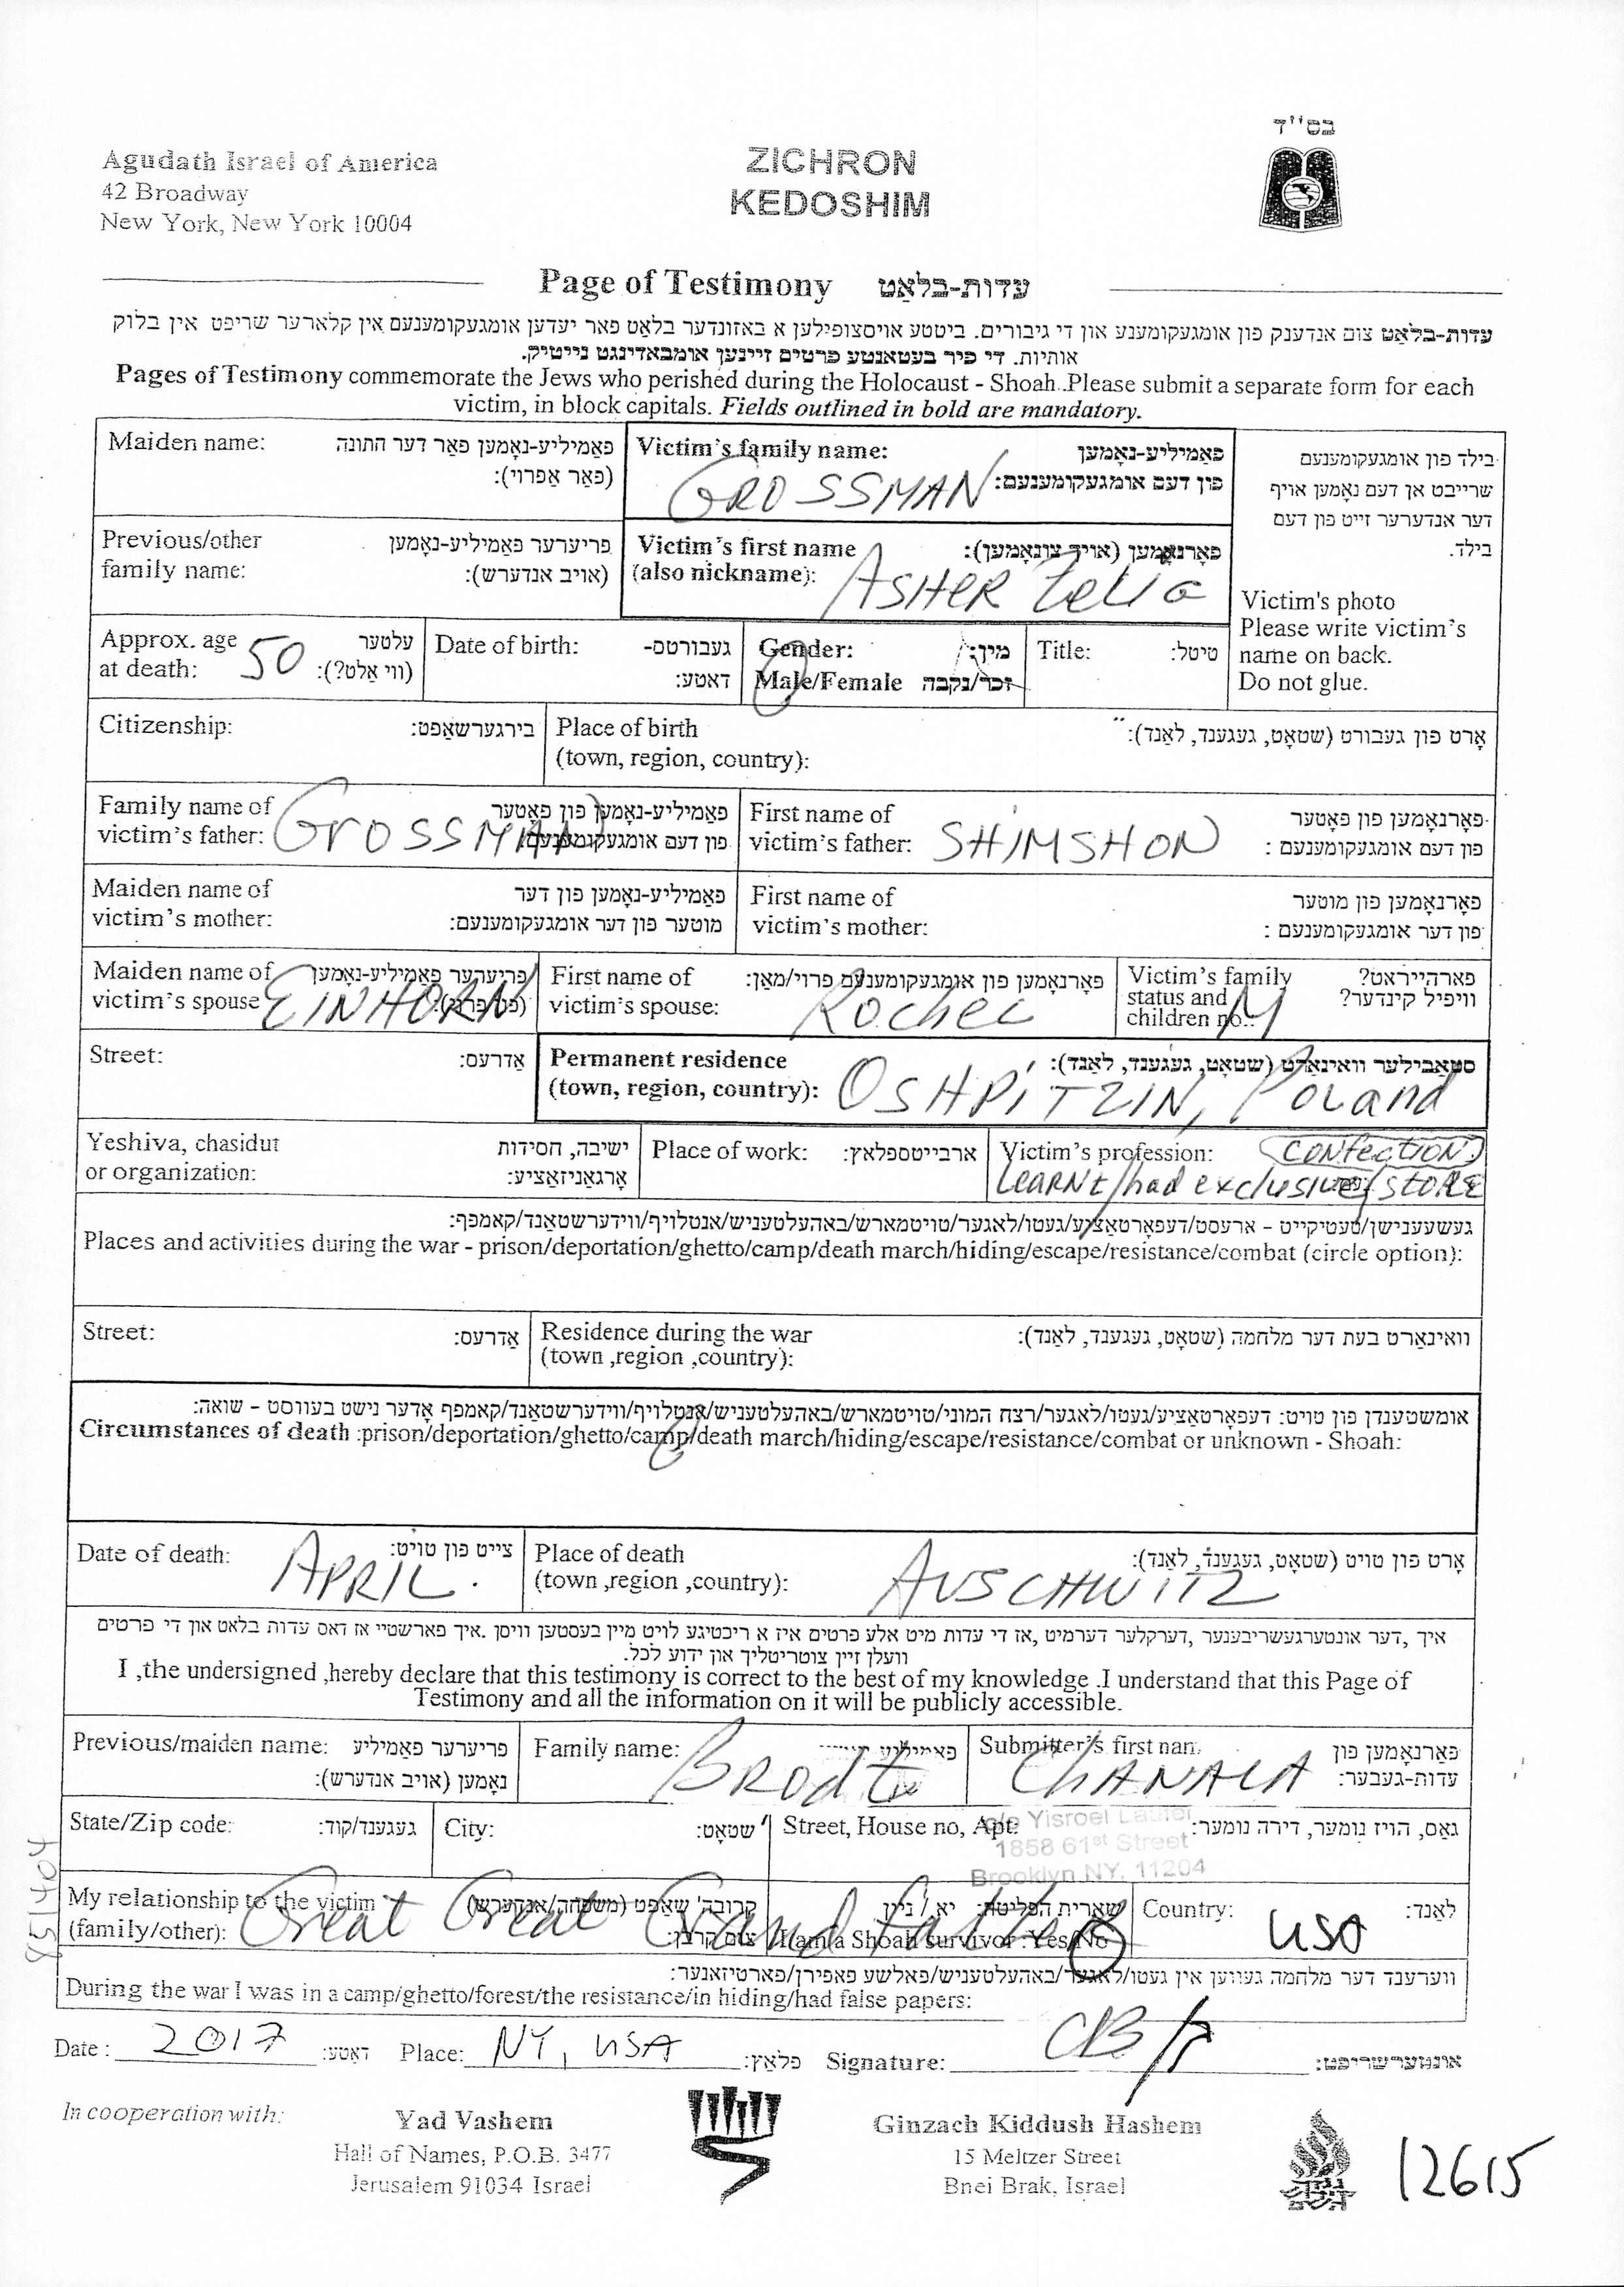 בס"ד
Agudath Israel of America
42 Broadway
New York, New York 10004
ZICHRON
KEDOSHIM
Page of Testimony עדות-בלאַט
עדות-בלאַט צום אנדענק פון אומגעקומענע און די גיבורים. ביטע אויסצופילען א באזונדער בלאט פאר יעדען אומגעקומענעם אין קלארער שריפט אין בלוק
אותיות. די פיר בעטאנטע פרטים זיינען אומבאדינגט נייטיק.
Pages of Testimony commemorate the Jews who perished during the Holocaust - Shoah. Please submit a separate form for each
victim, in block capitals. Fields outlined in bold are mandatory.
Maiden name: פאַמיליע-נאָמען פאר דער חתונה
(פאַר אַפרוי):
Victim's family name: פאַמיליע-נאָמען
פון דעם אומגעקומענעם:
GROSSMAN
בילד פון אומגעקומענעם
שרייבט אן דעם נאָמען אויף
דער אנדערער זייט פון דעם
בילד.
Previous/other family name: פריערער פאַמיליע-נאָמען
(אויב אנדערש):
Victim's first name פאָרנאָמען (אויך צונאָמען):
(also nickname): ASHER Zelig
Victim's photo
Please write victim's
name on back.
Do not glue.
Approx. age עלטער
at death: 50 (ווי אַלט?):
Date of birth: געבורטס-
דאטע:
Gender: מין:
Male/Female זכר/נקבה
Title: טיטל:
Citizenship: בירגערשאַפט:
Place of birth אָרט פון געבורט (שטאָט, געגענד, לאַנד):
(town, region, country):
Family name of פאַמיליע-נאָמען פון פאָטער
victim's father: GROSSMAN פון דעם אומגעקומענעם:
First name of פאָרנאָמען פון פאָטער
victim's father: SHIMSHON פון דעם אומגעקומענעם :
Maiden name of פאַמיליע-נאָמען פון דער
victim's mother: מוטער פון דער אומגעקומענעם:
First name of פאָרנאָמען פון מוטער
victim's mother: פון דער אומגעקומענעם :
Maiden name of פריערער פאַמיליע-נאָמען
victim's spouse EINHORN
First name of פאָרנאָמען פון אומגעקומענעם פרוי/מאַן:
victim's spouse: Rochel
Victim's family פארהייראט?
status and M וויפיל קינדער?
children no.:
Street: אַדרעס:
Permanent residence סטאַבילער וואוינאָרט (שטאָט, געגענד, לאַנד):
(town, region, country): OSHPITZIN, Poland
Yeshiva, chasidut ישיבה, חסידות
or organization: אָרגאַניזאַציע:
Place of work: ארבייטספלאץ:
Victim's profession: CONFECTION
LEARNt/had exclusive/STORE
געשעענישן/טעטיקייט - ארעסט/דעפאָרטאַציע/געטו/לאגער/טויטמארש/באהעלטעניש/אנטלויף/ווידערשטאַנד/קאמפף:
Places and activities during the war - prison/deportation/ghetto/camp/death march/hiding/escape/resistance/combat (circle option):
Street: אַדרעס:
Residence during the war וואינאַרט בעת דער מלחמה (שטאָט, געגענד, לאַנד):
(town ,region ,country):
אומשטענדן פון טויט: דעפאָרטאַציע/געטו/לאגער/רצח המוני/טויטמארש/באהעלטעניש/אנטלויף/ווידערשטאַנד/קאמפף אָדער נישט בעוווסט - שואה:
Circumstances of death :prison/deportation/ghetto/camp/death march/hiding/escape/resistance/combat or unknown - Shoah:
Date of death: צייט פון טויט:
APRIL.
Place of death אָרט פון טויט (שטאָט, געגענד, לאַנד):
(town ,region ,country): AUSCHWITZ
איך ,דער אונטערגעשריבענער ,דערקלער דערמיט ,אז די עדות מיט אלע פרטים איז א ריכטיגע לויט מיין בעסטען וויסן .איך פארשטיי אז דאס עדות בלאט און די פרטים
וועלן זיין צוטריטליך און ידוע לכל.
I ,the undersigned ,hereby declare that this testimony is correct to the best of my knowledge .I understand that this Page of
Testimony and all the information on it will be publicly accessible.
Previous/maiden name: פריערער פאַמיליע
נאָמען (אויב אנדערש):
Family name: Brodt
Submitter's first nam פאַרנאָמען פון
CHANALA עדות-געבער:
State/Zip code: געגענד/קוד:
City: שטאָט:
Street, House no, Apt: גאַס, הויז נומער, דירה נומער:
c/o Yisroel Laufer
1858 61st Street
Brooklyn NY. 11204
My relationship to the victim קרובה'שאַפט (משפחה/אנדערש)
(family/other): Great Great Grand father
שארית הפליטה: יא / ניין
I am a Shoah survivor :Yes/No
Country: USA לאַנד:
ווערענד דער מלחמה געווען אין געטו/לאַגער/באהעלטעניש/פאלשע פאפירן/פארטיזאנער:
During the war I was in a camp/ghetto/forest/the resistance/in hiding/had false papers:
Date : 2017 דאטע: Place: NY, USA פלאַץ: Signature: CB אונטערשריפט:
In cooperation with:
Yad Vashem
Hall of Names, P.O.B. 3477
Jerusalem 91034 Israel
Ginzach Kiddush Hashem
15 Meltzer Street
Bnei Brak, Israel
12615
851404